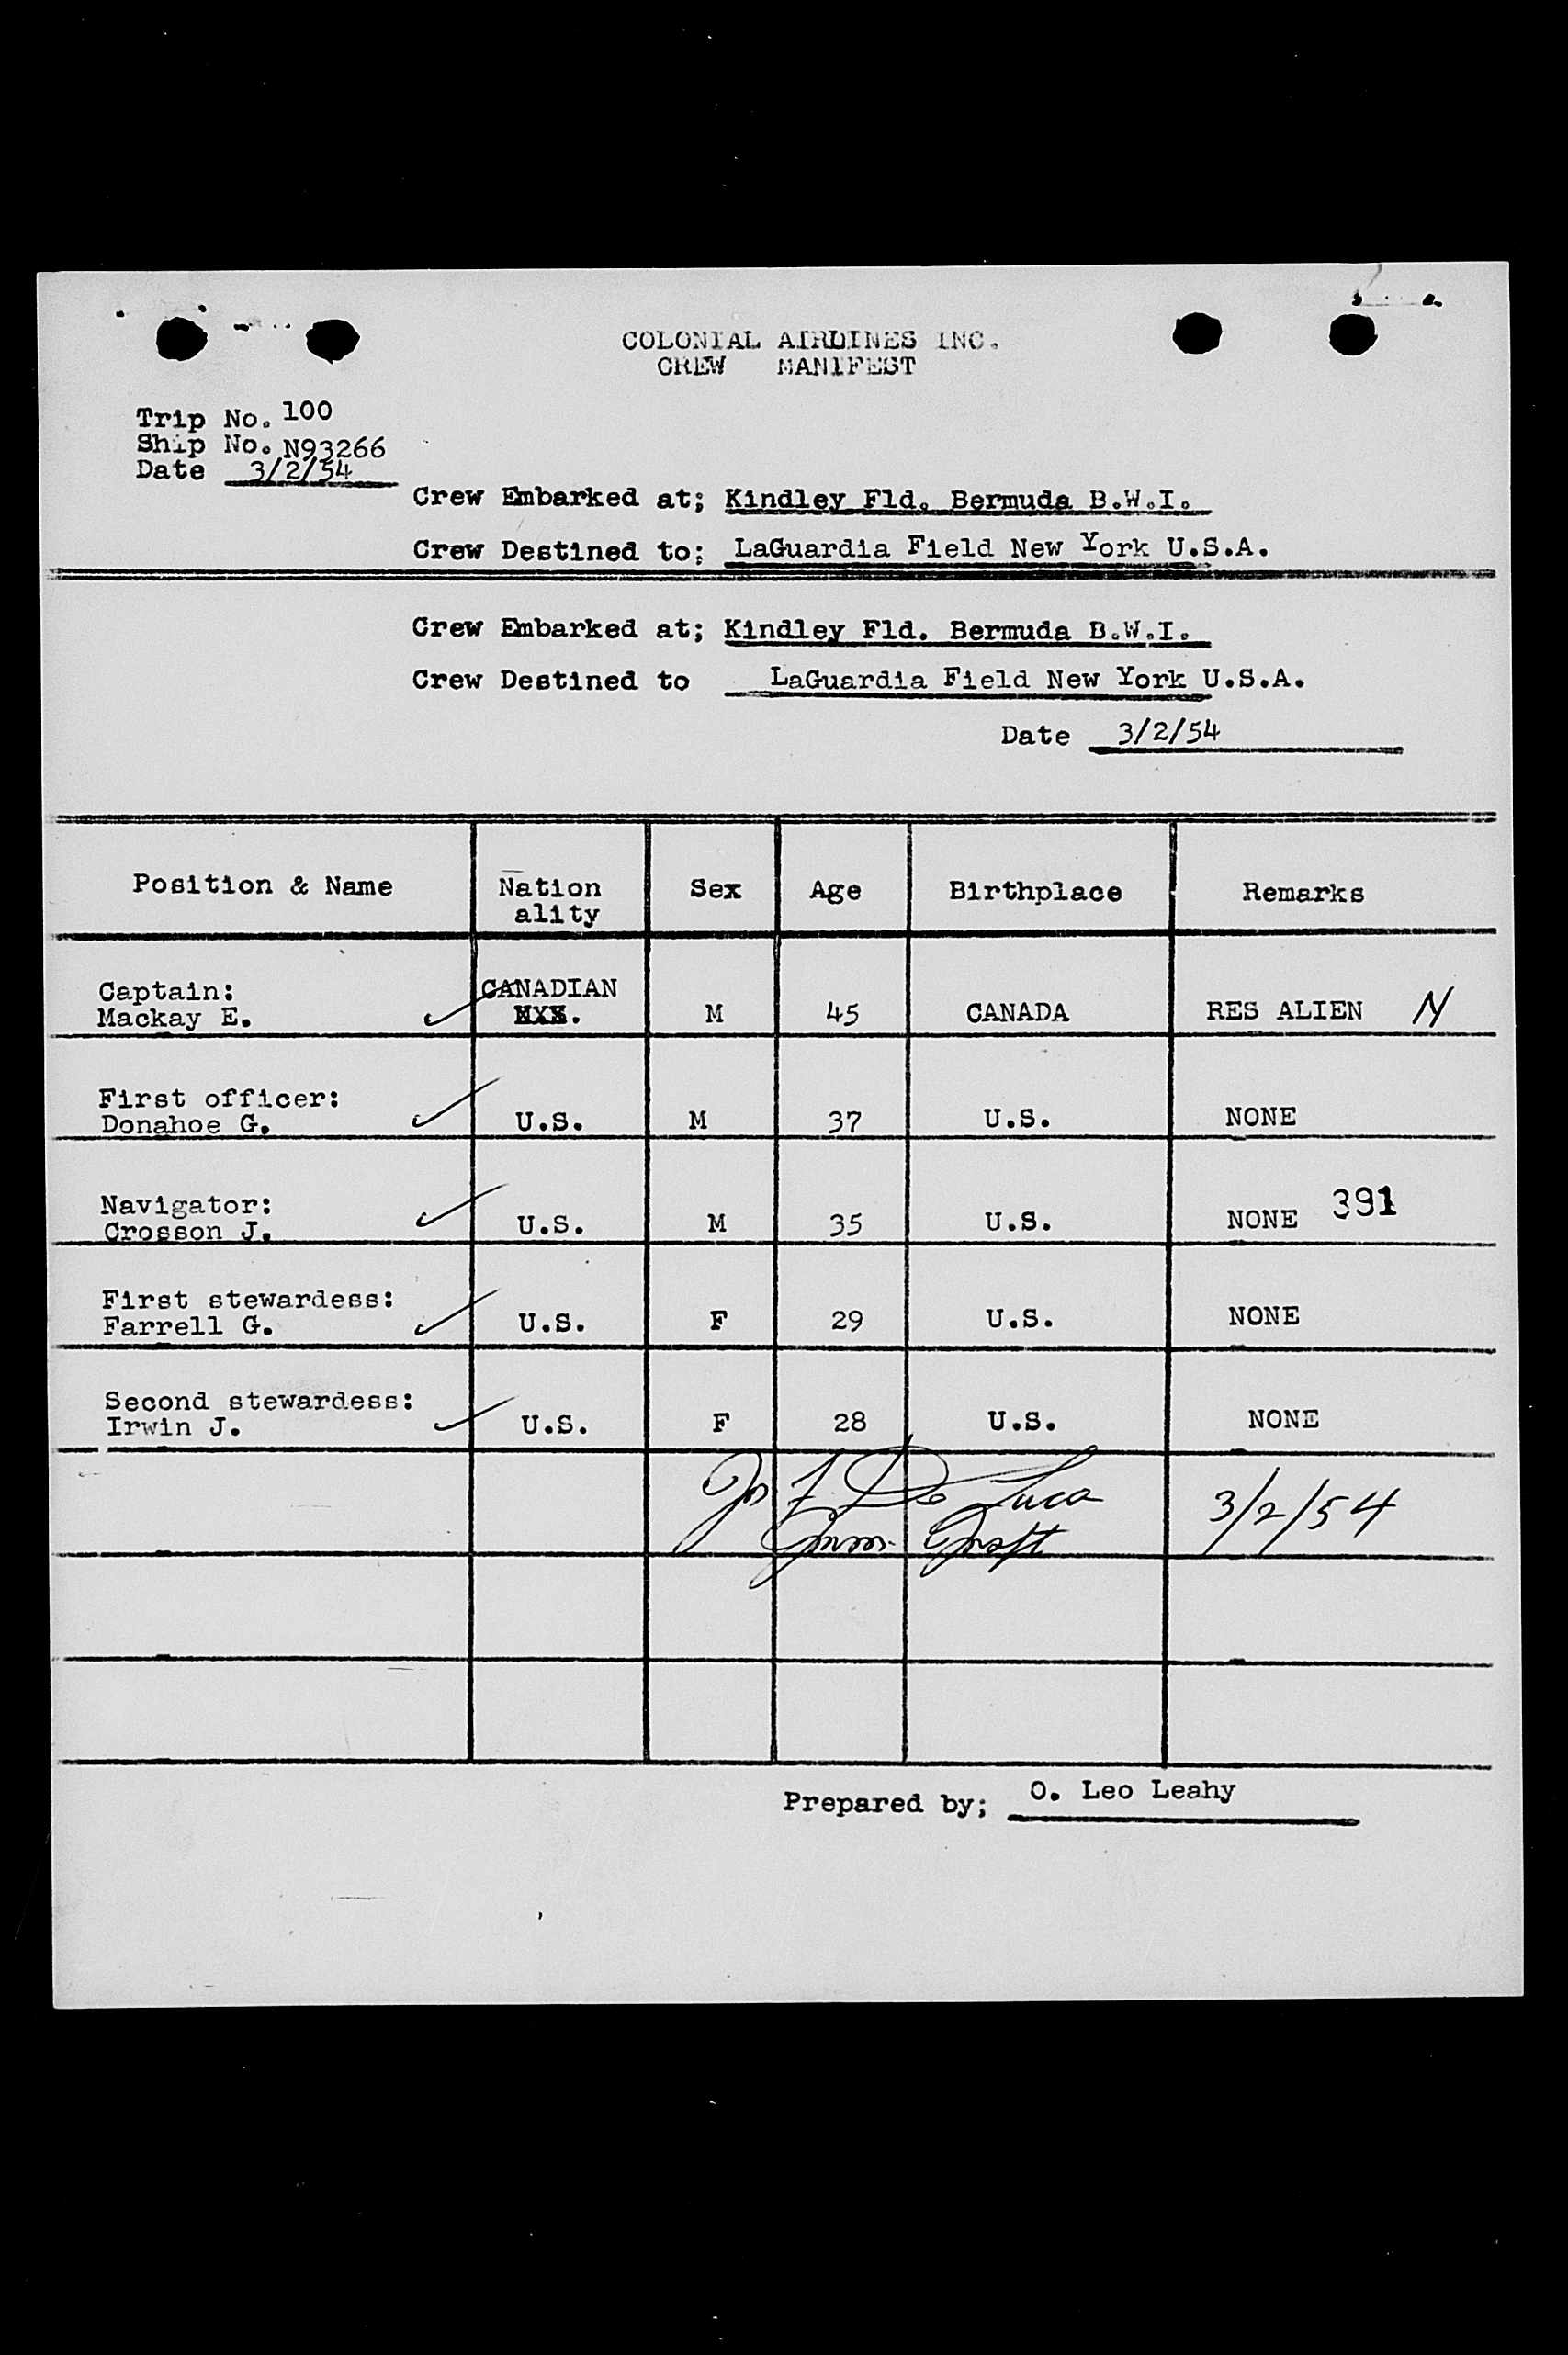 COLONIAL AIRLINES INC.
CREW MANIFEST
Trip No. 100
Ship No. N93266
Date 3/2/54
Crew Embarked at; Kindley Fld. Bermuda B.W.I.
Crew Destined to; LaGuardia Field New York U.S.A.
Crew Embarked at; Kindley Fld. Bermuda B.W.I.
Crew Destined to LaGuardia Field New York U.S.A.
Date 3/2/54
Position & Name Nation ality Sex Age Birthplace Remarks
Captain:
Mackay E. CANADIAN M 45 CANADA RES ALIEN N
First officer:
Donahoe G. U.S. M 37 U.S. NONE
Navigator:
Crosson J. U.S. M 35 U.S. NONE 391
First stewardess:
Farrell G. U.S. F 29 U.S. NONE
Second stewardess:
Irwin J. U.S. F 28 U.S. NONE
Jos F. De Luca 3/2/54
Imm. Inspt
Prepared by; O. Leo Leahy